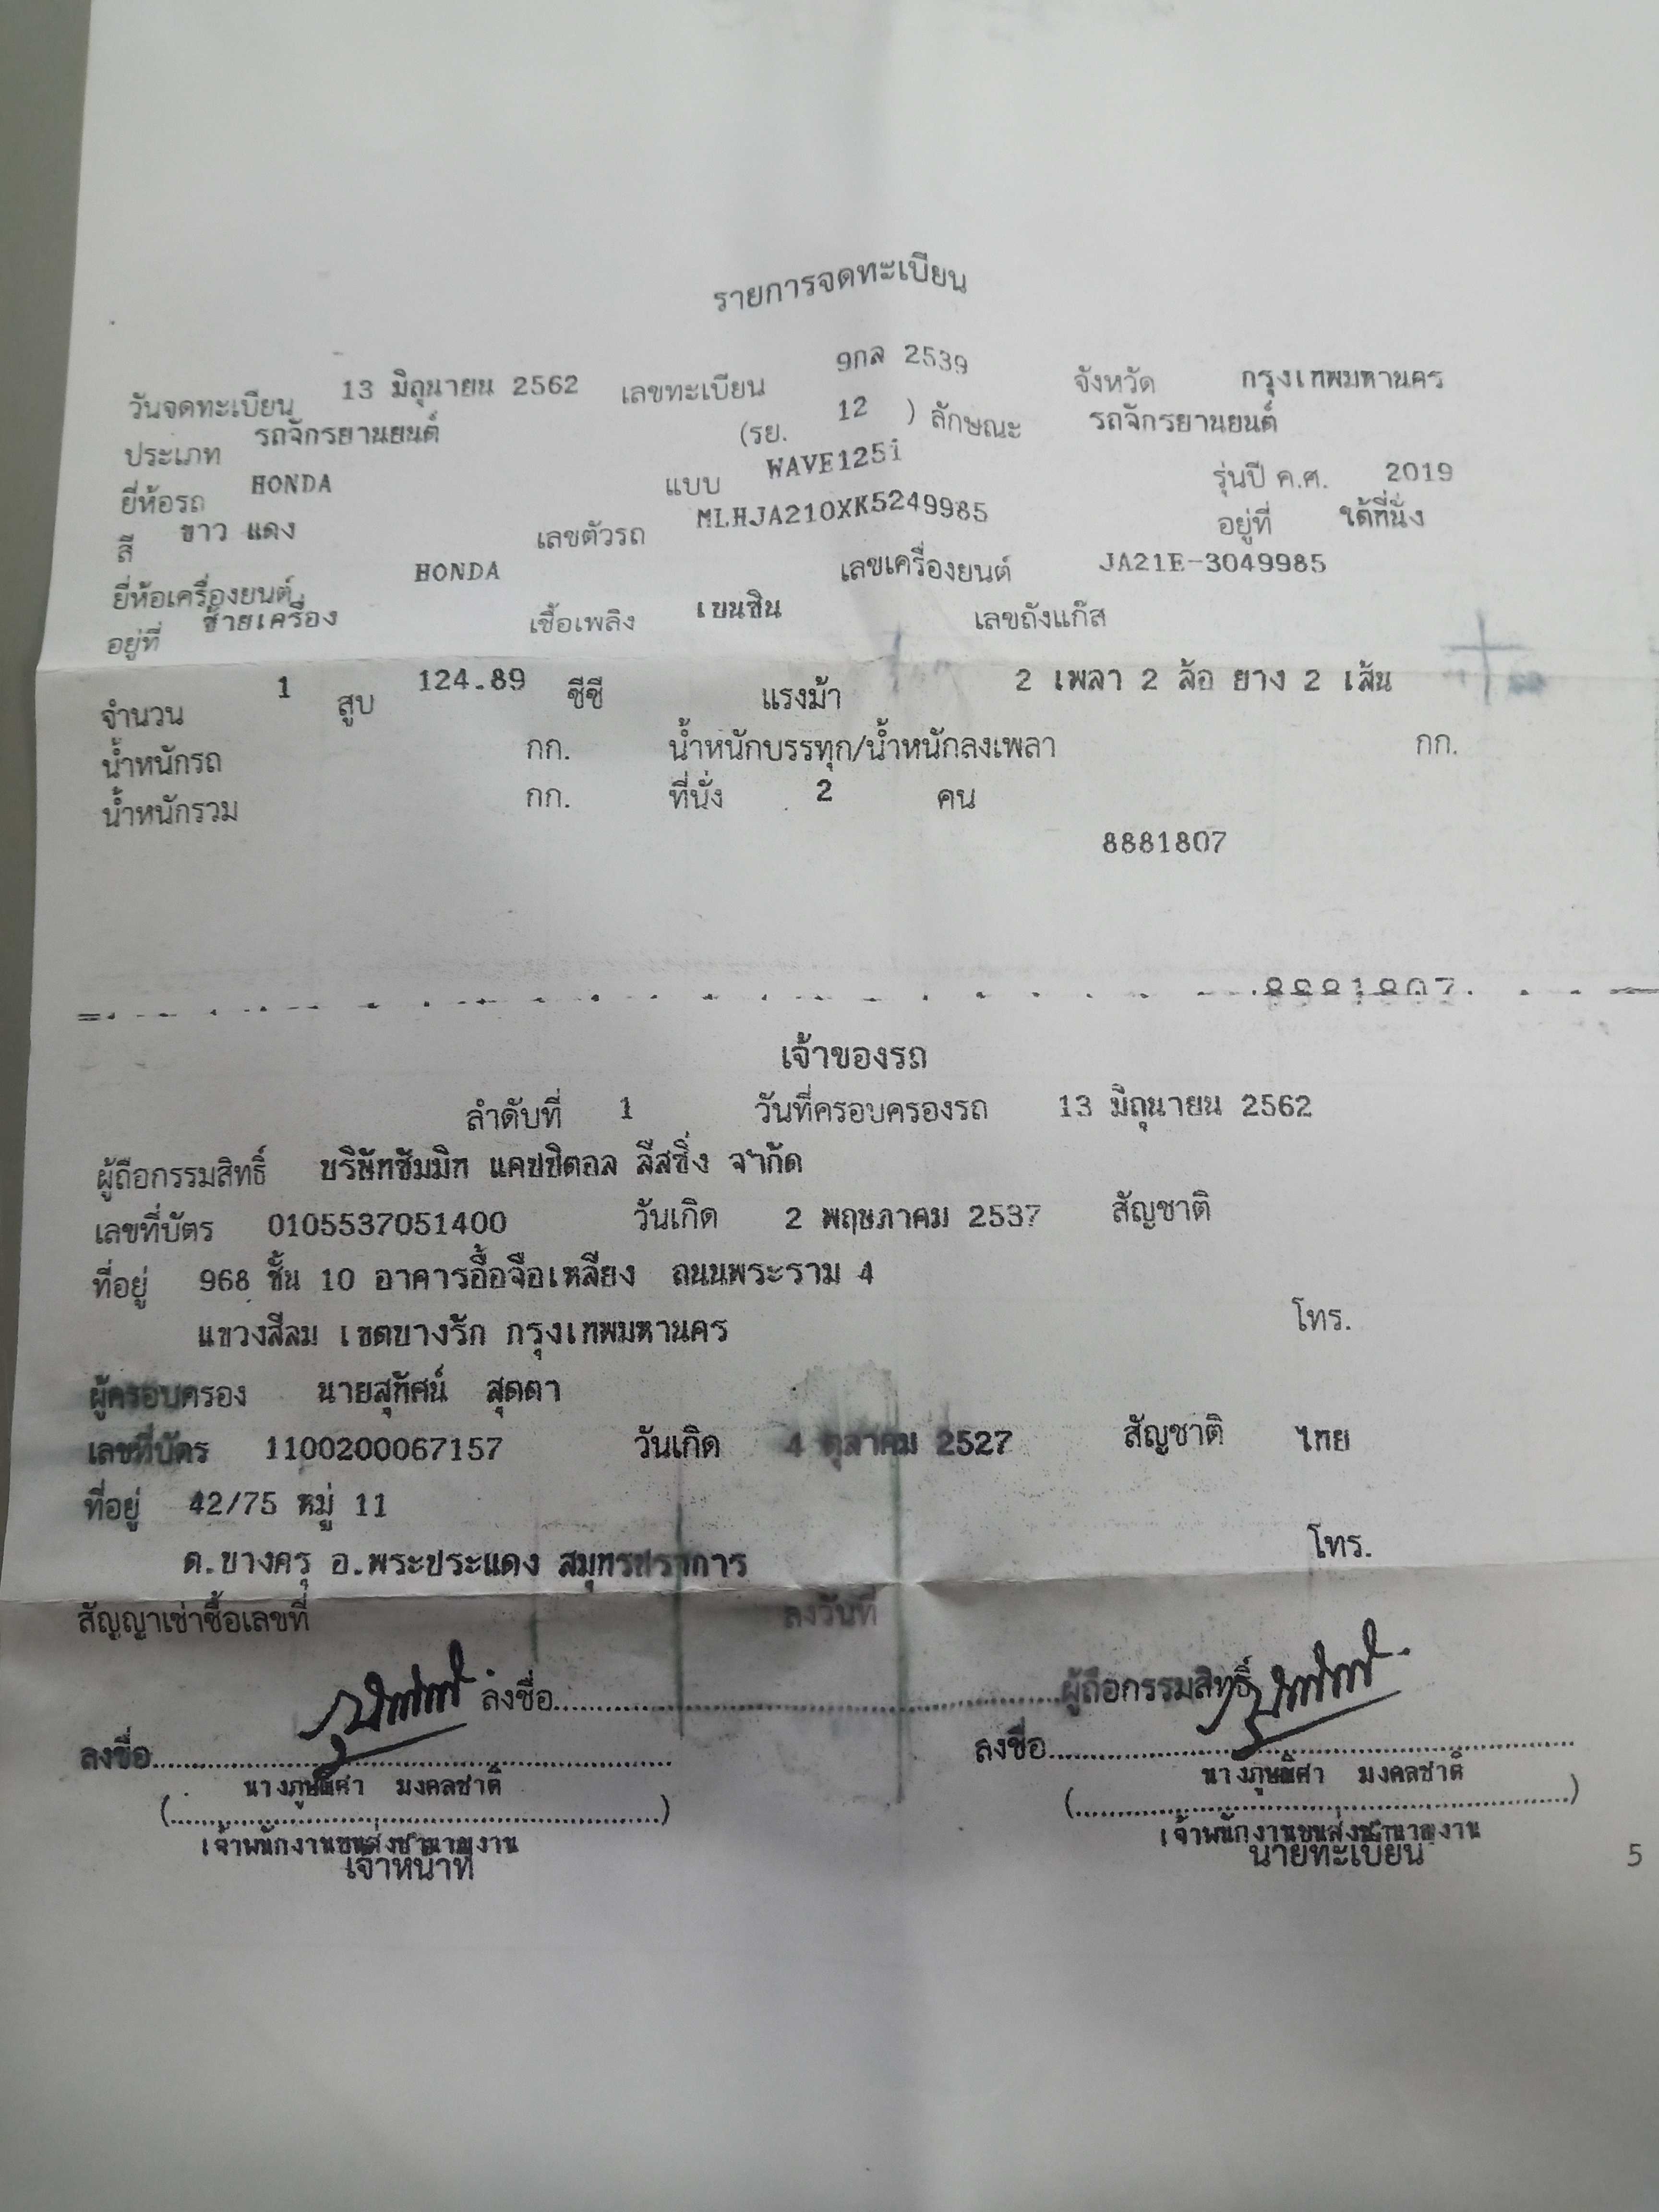 รายการจดทะเบียน
วันจดทะเบียน 13 มิถุนายน 2562 เลขทะเบียน 9กล 2539 จังหวัด กรุงเทพมหานคร
ประเภท รถจักรยานยนต์ (รย. 12 ) ลักษณะ รถจักรยานยนต์
ยี่ห้อรถ HONDA แบบ WAVE125i รุ่นปี ค.ศ. 2019
สี ขาว แดง เลขตัวรถ MLHJA210XK5249985 อยู่ที่ ใต้ที่นั่ง
ยี่ห้อเครื่องยนต์ HONDA เลขเครื่องยนต์ JA21E-3049985
อยู่ที่ ซ้ายเครื่อง เชื้อเพลิง เบนซิน เลขถังแก๊ส
จำนวน 1 สูบ 124.89 ซีซี แรงม้า 2 เพลา 2 ล้อ ยาง 2 เส้น
น้ำหนักรถ กก. น้ำหนักบรรทุก/น้ำหนักลงเพลา กก.
น้ำหนักรวม กก. ที่นั่ง 2 คน
8881807
8881807
เจ้าของรถ
ลำดับที่ 1 วันที่ครอบครองรถ 13 มิถุนายน 2562
ผู้ถือกรรมสิทธิ์ บริษัทซัมมิท แคปปิตอล ลีสซิ่ง จำกัด
เลขที่บัตร 0105537051400 วันเกิด 2 พฤษภาคม 2537 สัญชาติ
ที่อยู่ 968 ชั้น 10 อาคารอื้อจือเหลียง ถนนพระราม 4
แขวงสีลม เขตบางรัก กรุงเทพมหานคร โทร.
ผู้ครอบครอง นายสุทัศน์ สุดตา
เลขที่บัตร 1100200067157 วันเกิด 4 ตุลาคม 2527 สัญชาติ ไทย
ที่อยู่ 42/75 หมู่ 11
ต.บางครุ อ.พระประแดง สมุทรปราการ โทร.
สัญญาเช่าซื้อเลขที่ ลงวันที่
ลงชื่อ ผู้ถือกรรมสิทธิ์
ลงชื่อ ลงชื่อ
มงคลชาติ มงคลชาติ
เจ้าพนักงานขนส่งชำนาญงาน เจ้าพนักงานขนส่งชำนาญงาน
เจ้าหน้าที่ นายทะเบียน 5